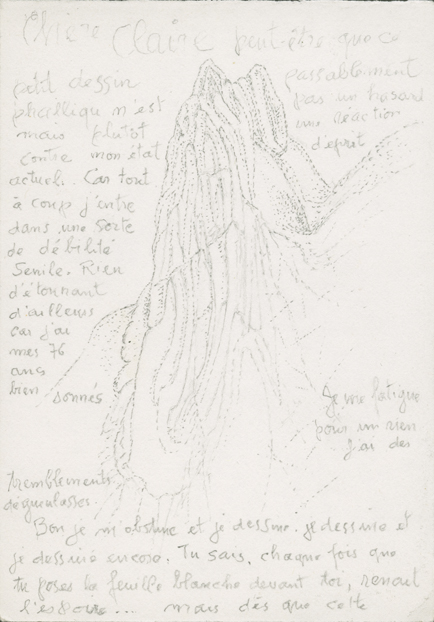 Chère Claire peut-être que ce
petit dessin passablement
phallique n'est pas un hasard
mais plutôt une réaction
d'eprit
contre mon état
actuel. Car tout
à coup j'entre
dans une sorte
de débilité
Senile. Rien
d'étonnant
d'ailleurs
car j'ai
mes 76
ans
bien sonnés
Je me fatigue
pour un rien
J'ai des
tremblements
dégueulasses.
Bon je m'obstine et je dessine. je dessine et
je dessine encore. Tu sais, chaque fois que
tu poses la feuille blanche devant toi, renait
l'espoir... mais dès que cette